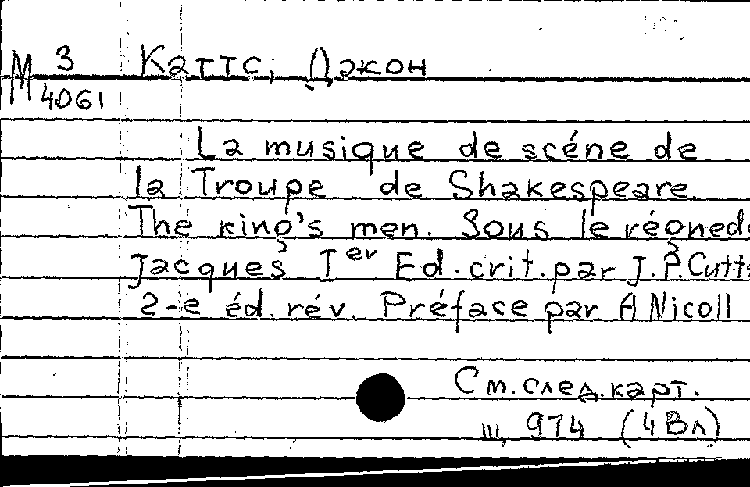 М 3 Каттс, Джон
4061
La musique de scéne de
la Troupe de Shakespeare
The king's men. Sous le régnede
Jacques Ier Ed.crit.par J.P.Cutts
2-e éd.rév. Préface par A Nicoll
См.след.карт.
ш, 974 (4Вл)